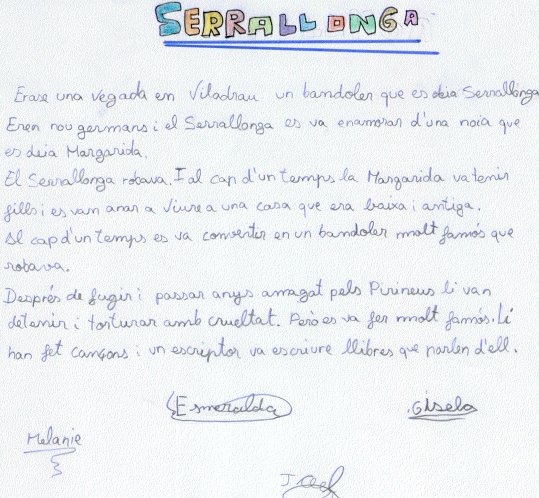 SERRALLONGA
Erase una vegada em Viladrau un bandoler que es deia Serrallonga
Eren nou germans i el Serrallonga es va enamorar d'una noia que
es deia Margarida.
El Serrallonga robava. I al cap d'un temps la Margarida va tenir
fills i es van anar a viure a una casa que era baixa i antiga.
Al cap d'un temps es va convertir en un bandoler molt famós que
robava.
Després de fugir i passar anys amagat pels Pirineus li van
detenir i torturar amb crueltat. Però es va fer molt famós. Li
han fet cançons i un escriptor va escriure llibres que parlen d'ell.
Esmeralda
Gisela
Melanie